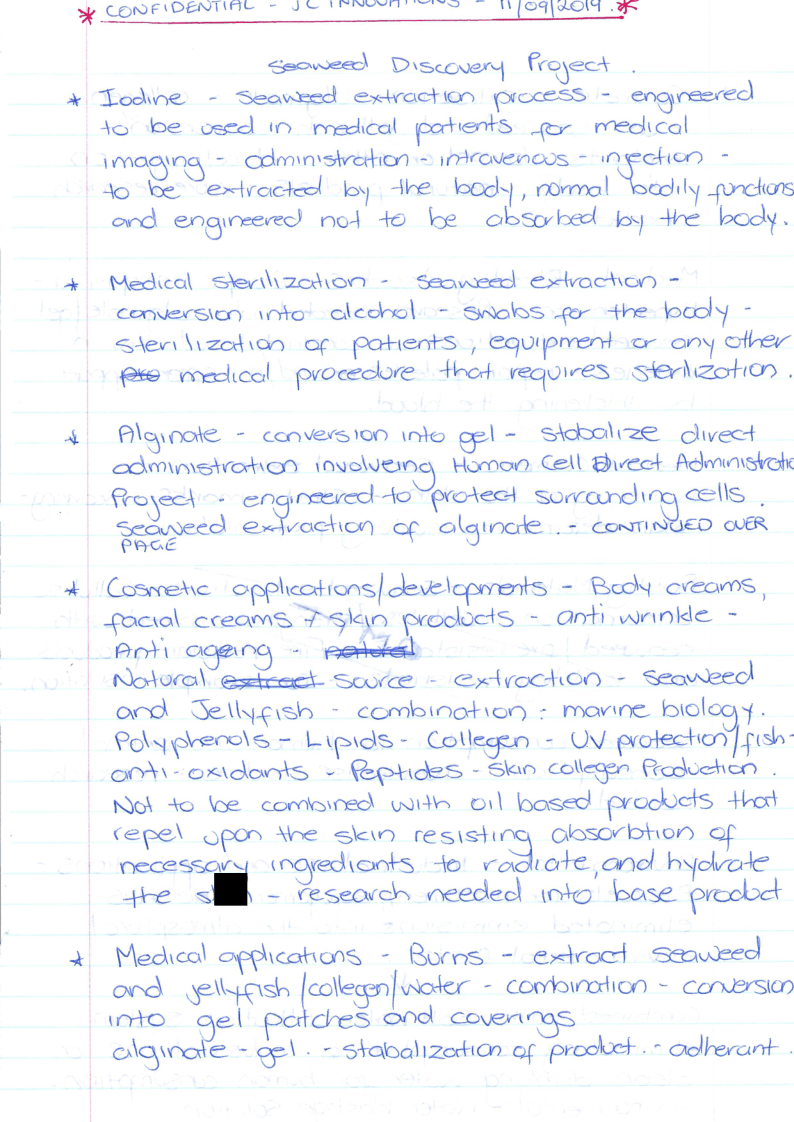 * CONFIDENTIAL - JC INNOVATIONS - 11/09/2019. *
Seaweed Discovery Project.
* Iodine - seaweed extraction process - engineered
to be used in medical patients for medical
imaging - administration - intravenous - injection -
to be extracted by the body, normal bodily functions
and engineered not to be absorbed by the body.
* Medical sterilization - seaweed extraction -
conversion into alcohol - swabs for the body -
sterilization of patients, equipment or any other
pro medical procedure that requires sterilization.
* Alginate - conversion into gel - stabalize direct
administration involveing Human Cell Direct Administratio
Project - engineered to protect surranding cells.
seaweed extraction of alginate. - CONTINUED OVER
PAGE
* Cosmetic applications/developments - Body creams,
facial creams + skin products - anti wrinkle -
Anti ageing natural
Natural extract source - extraction - seaweed
and Jellyfish - combination : marine biology.
Polyphenols - Lipids - Collegen - UV protection/fish-
anti-oxidants - Peptides - skin collegen Production.
Not to be combined with oil based products that
repel upon the skin resisting absorbtion of
necessary ingrediants to radiate, and hydrate
the s - research needed into base product
* Medical applications - Burns - extract seaweed
and jellyfish/collegen/water - combination - conversion
into gel patches and coverings
alginate - gel. - stabalization of product. - adherant.